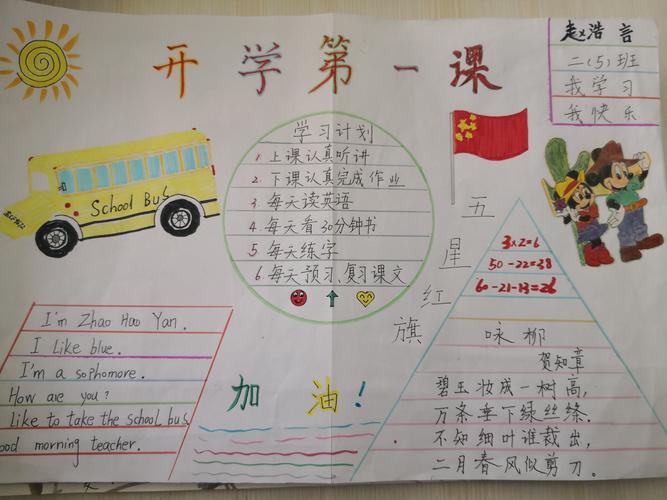 开学第一课
赵浩言
二(5)班
我学习
我快乐
学习计划
1.上课认真听讲
2.下课认真完成作业
3.每天读英语
4.每天看30分钟书
5.每天练字
6.每天预习、复习课文
School Bus
五星红旗
3×2=6
50-22=38
60-21-13=26
咏柳
贺知章
碧玉妆成一树高,
万条垂下绿丝绦.
不知细叶谁裁出,
二月春风似剪刀.
I'm Zhao Hao Yan.
I like blue.
I'm a sophomore.
How are you?
like to take the school bus
ood morning teacher.
加油!